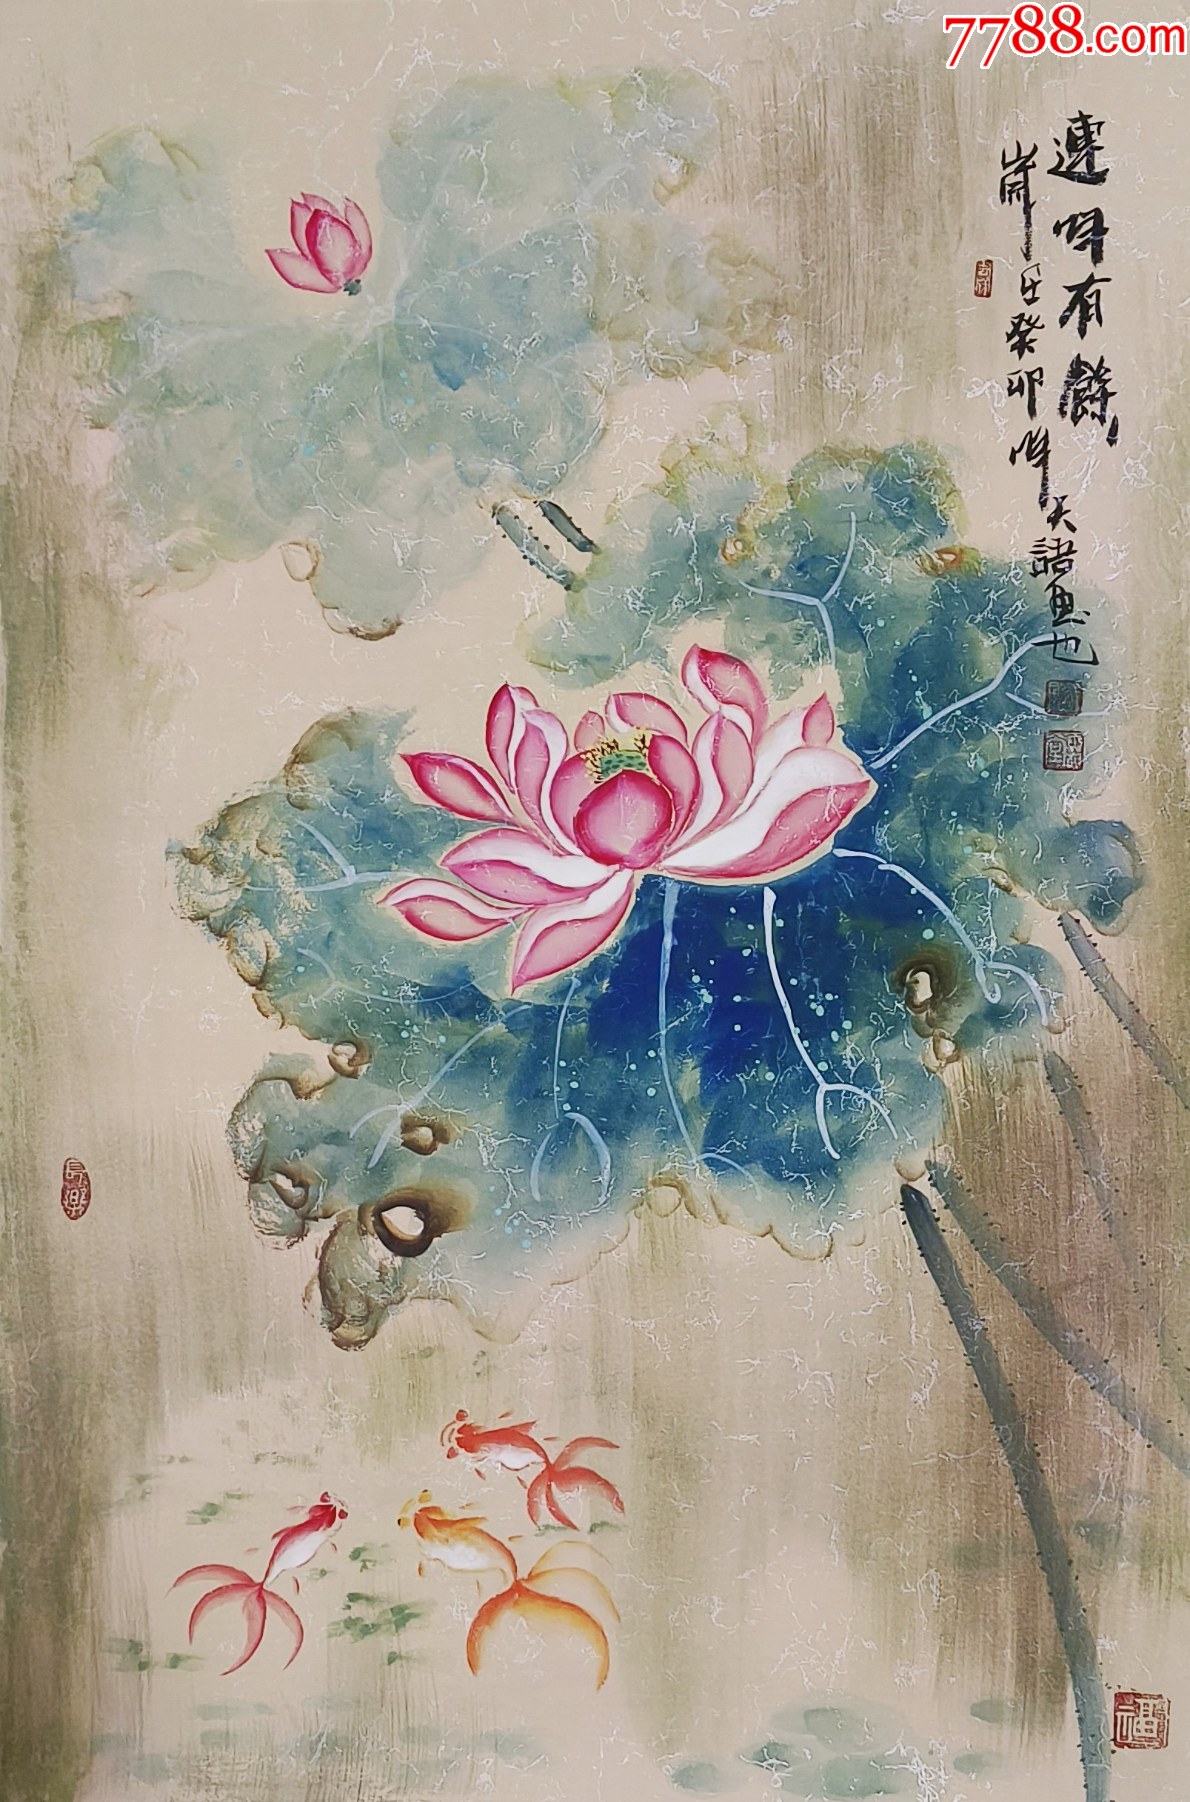 7788.com
連年有餘
歲在癸卯年天語畫也
長樂
福